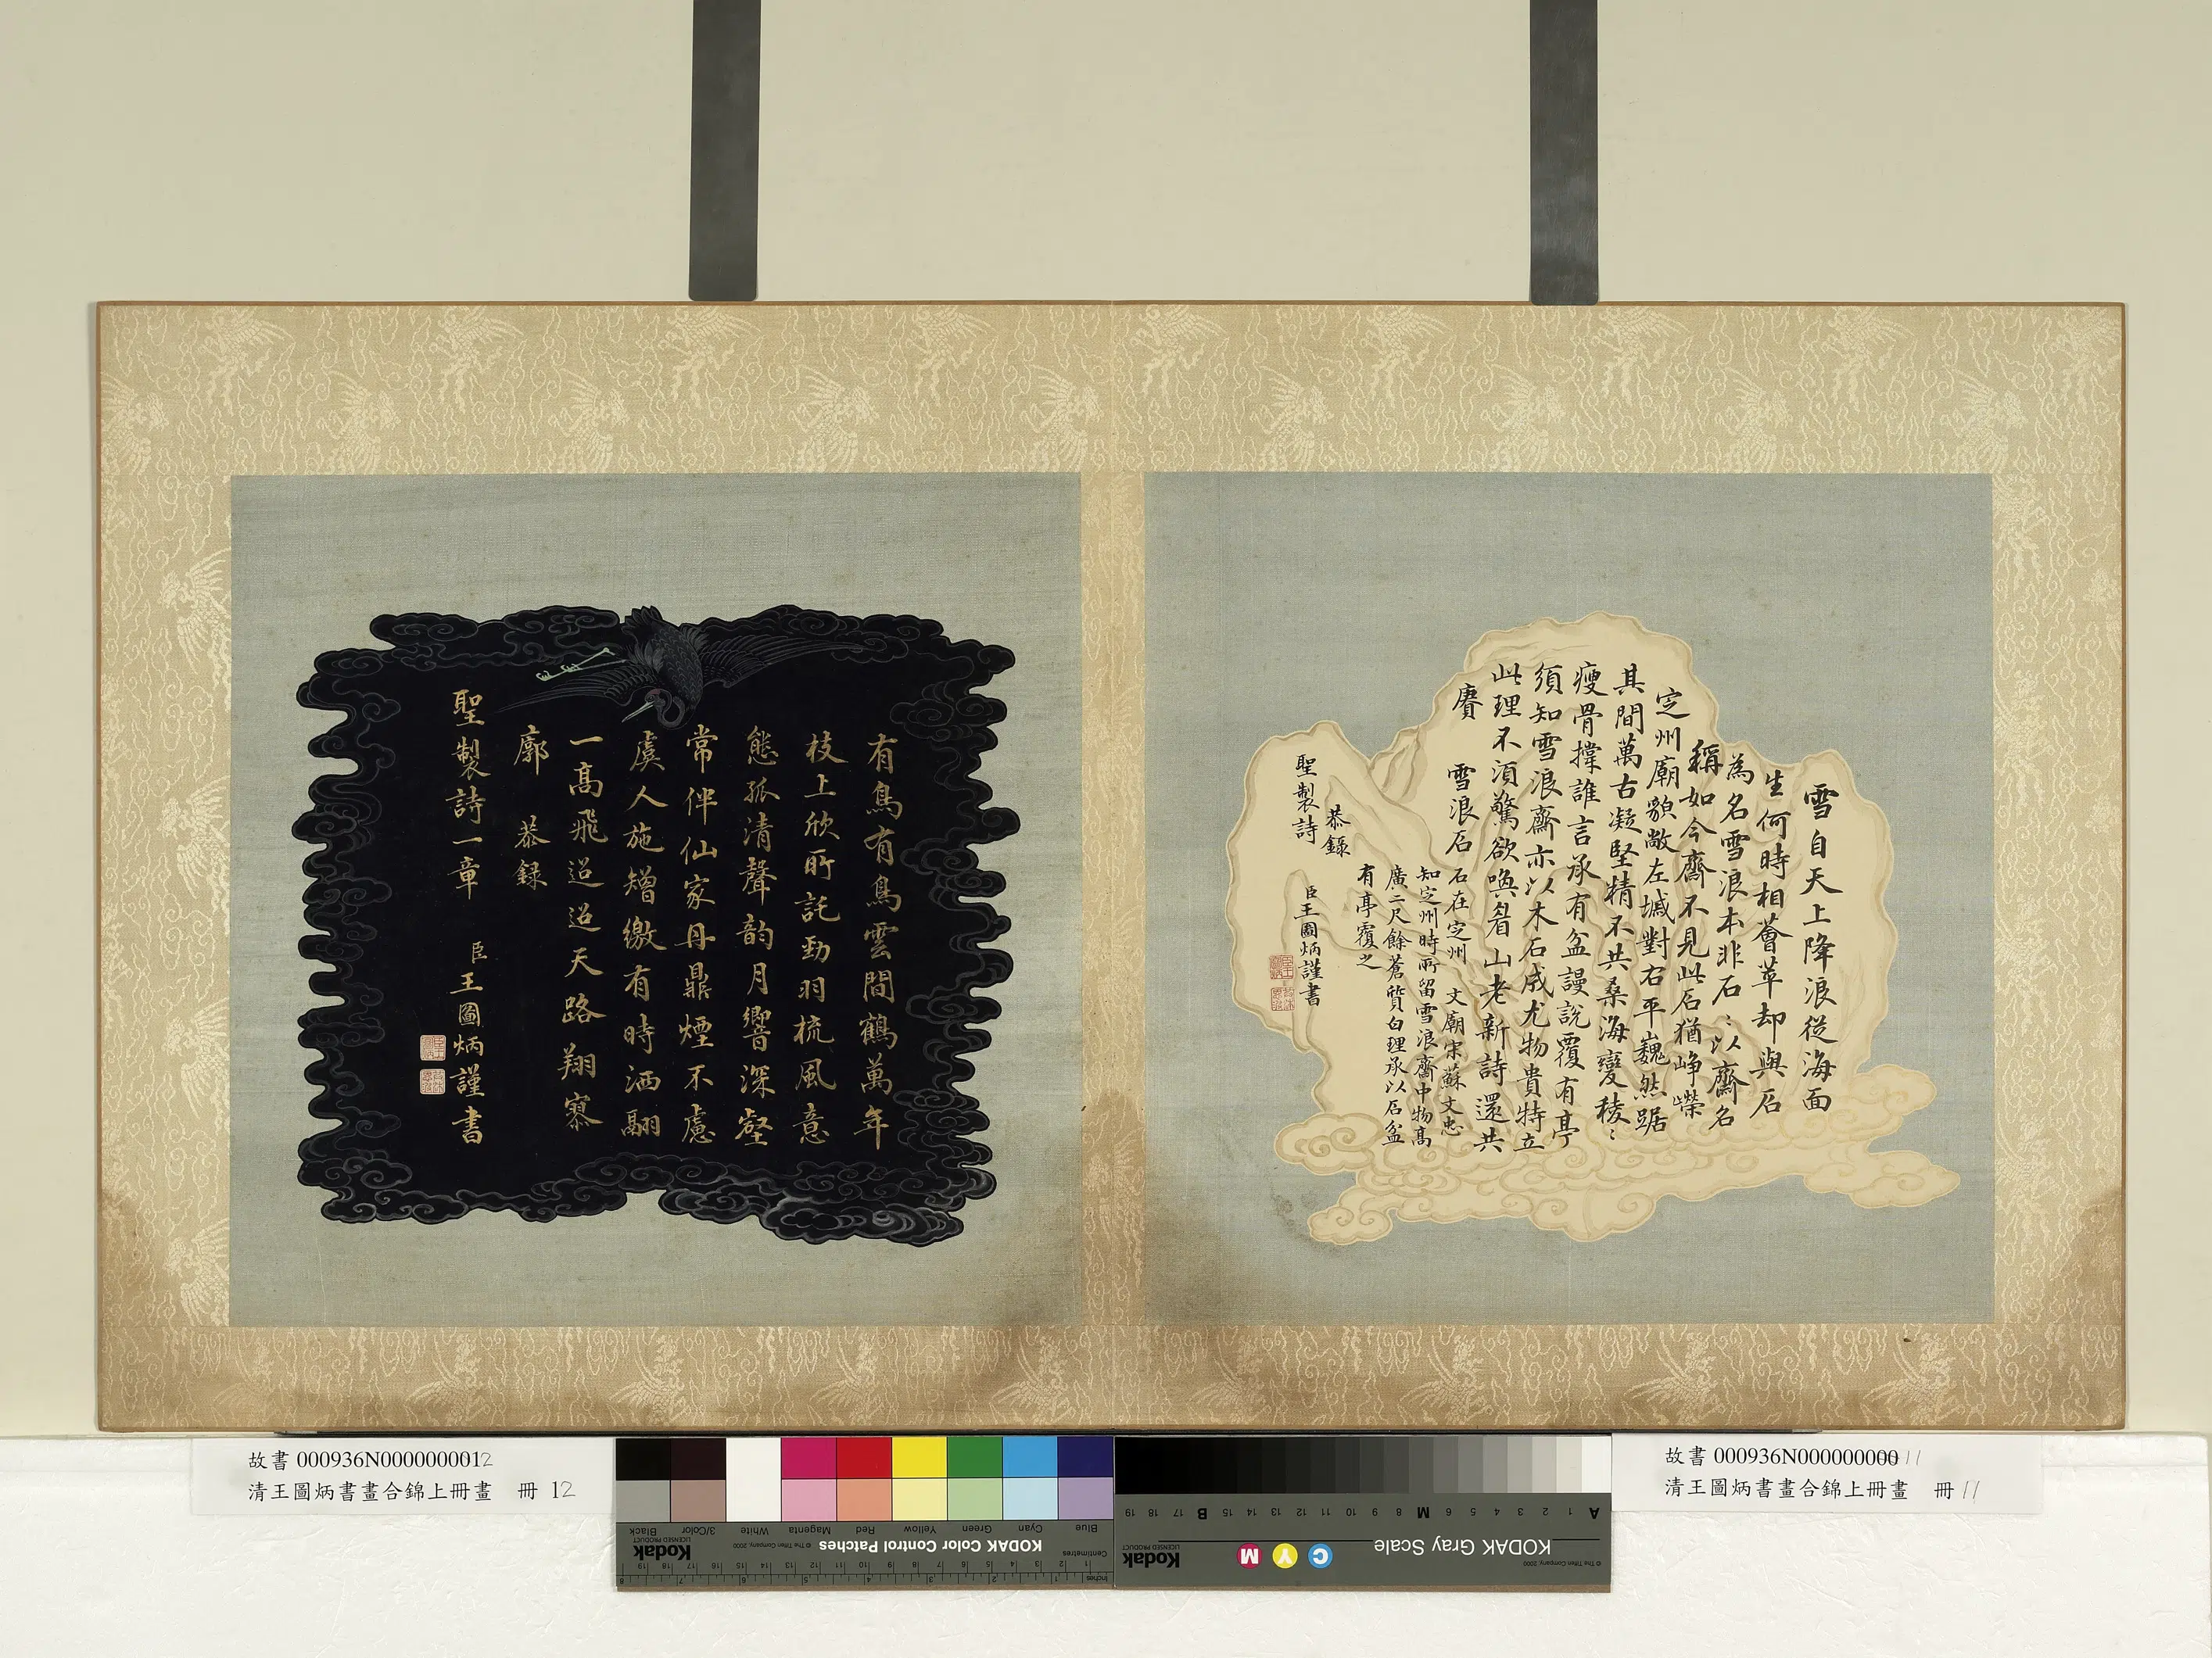 雪自天上降浪從海面
生何時相薈萃却與石
為名雪浪本非石〻以齋名
稱如今齋不見此石猶崢嶸
定州廟貌敞左墄對右平巍然踞
其間萬古凝堅精不共桑海變稜〻
瘦骨撐誰言承有盆謾說覆有亭
須知雪浪齋亦以木石成尤物貴特立
此理不須驚欲喚眉山老新詩還共
賡 雪浪石 石在定州 文廟宋蘇文忠
知定州時所留雪浪齋中物高
廣二尺餘蒼質白理承以石盆
有亭覆之
恭錄
聖製詩 臣王圖炳謹書
有鳥有鳥雲間鶴萬年
枝上欣所託勁羽梳風意
態孤清聲韵月響深壑
常伴仙家丹鼎煙不慮
虞人施矰繳有時洒翮
一高飛迢迢天路翔寥
廓 恭錄
聖製詩一章 臣王圖炳謹書
故書 000936N000000000012
清王圖炳書畫合錦上冊畫 冊 12
故書 000936N000000000011
清王圖炳書畫合錦上冊畫 冊 11
KODAK Color Control Patches
© The Tiffen Company, 2000
Kodak
LICENSED PRODUCT
Blue Cyan Green Yellow Red Magenta White 3/Color Black
Centimetres
Inches
KODAK Gray Scale
© The Tiffen Company, 2000
C Y M
Kodak
LICENSED PRODUCT
A 1 2 3 4 5 6 M 8 9 10 11 12 13 14 15 B 17 18 19